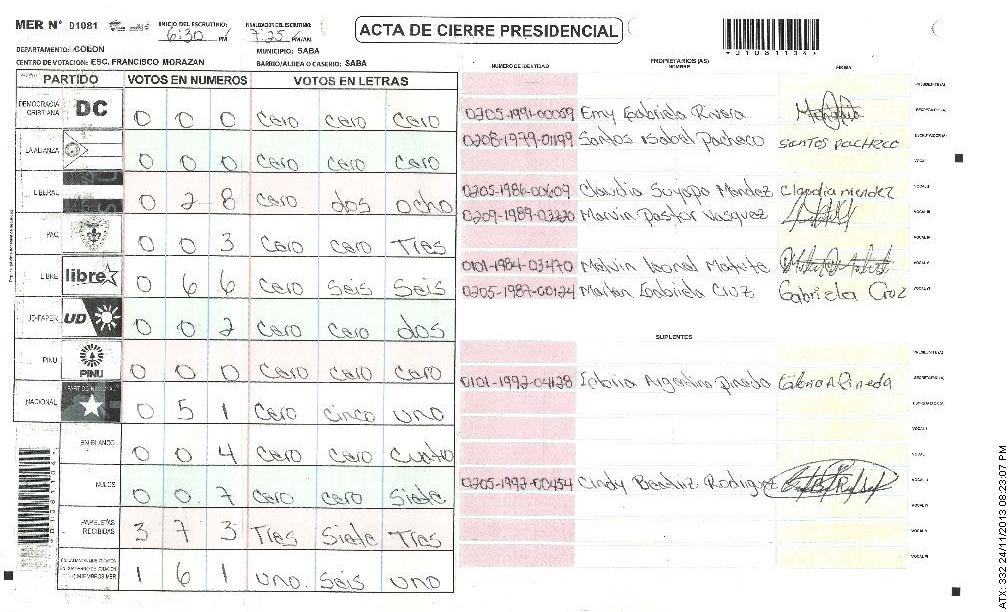 MER N° 01081 INICIO DEL ESCRUTINIO: 6:30 PM FINALIZACION DEL ESCRUTINIO: 7:25 PM/AM.
ACTA DE CIERRE PRESIDENCIAL
*01081134*
DEPARTAMENTO: COLON MUNICIPIO: SABA
CENTRO DE VOTACION: ESC. FRANCISCO MORAZAN BARRIO/ALDEA O CASERIO: SABA
PARTIDO VOTOS EN NUMEROS VOTOS EN LETRAS
DEMOCRACIA CRISTIANA DC 0 0 0 cero cero cero
LA ALIANZA 0 0 0 cero cero cero
LIBERAL 0 2 8 cero dos ocho
PAC 0 0 3 cero cero Tres
LIBRE libre 0 6 6 cero Seis Seis
UD-FAPER UD 0 0 2 cero cero dos
PINU PINU 0 0 0 cero cero cero
NACIONAL 0 5 1 cero cinco uno
EN BLANCO 0 0 4 cero cero cuatro
NULOS 0 0 7 cero cero Siete
PAPELETAS RECIBIDAS 3 7 3 Tres Siete Tres
MIEMBROS MER 1 6 1 uno Seis uno
NUMERO DE IDENTIDAD PROPIETARIOS (AS) NOMBRE FIRMA
PRESIDENTE(A)
0205-1991-00059 Emy Gabriela Rivera SECRETARIO(A)
0208-1979-01199 Santos Isabel Pacheco Santos Pacheco ESCRUTADOR(A)
VOCAL I
0205-1986-00609 Claudia Suyapa Mendez Claudia mendez VOCAL II
0209-1989-03220 Marvin Pastor Vasquez VOCAL III
VOCAL IV
0101-1984-03470 Melvin Leonel Matute VOCAL V
0205-1987-00124 Marlen Gabriela Cruz Gabriela Cruz VOCAL VI
SUPLENTES
PRESIDENTE(A)
0101-1992-04128 Argentina Pineda Pineda SECRETARIO(A)
ESCRUTADOR(A)
VOCAL I
VOCAL II
0205-1992-00454 Cindy Beatriz Rodriguez VOCAL III
VOCAL IV
VOCAL V
VOCAL VI
ATX: 332 24/11/2013 08:23:07 PM